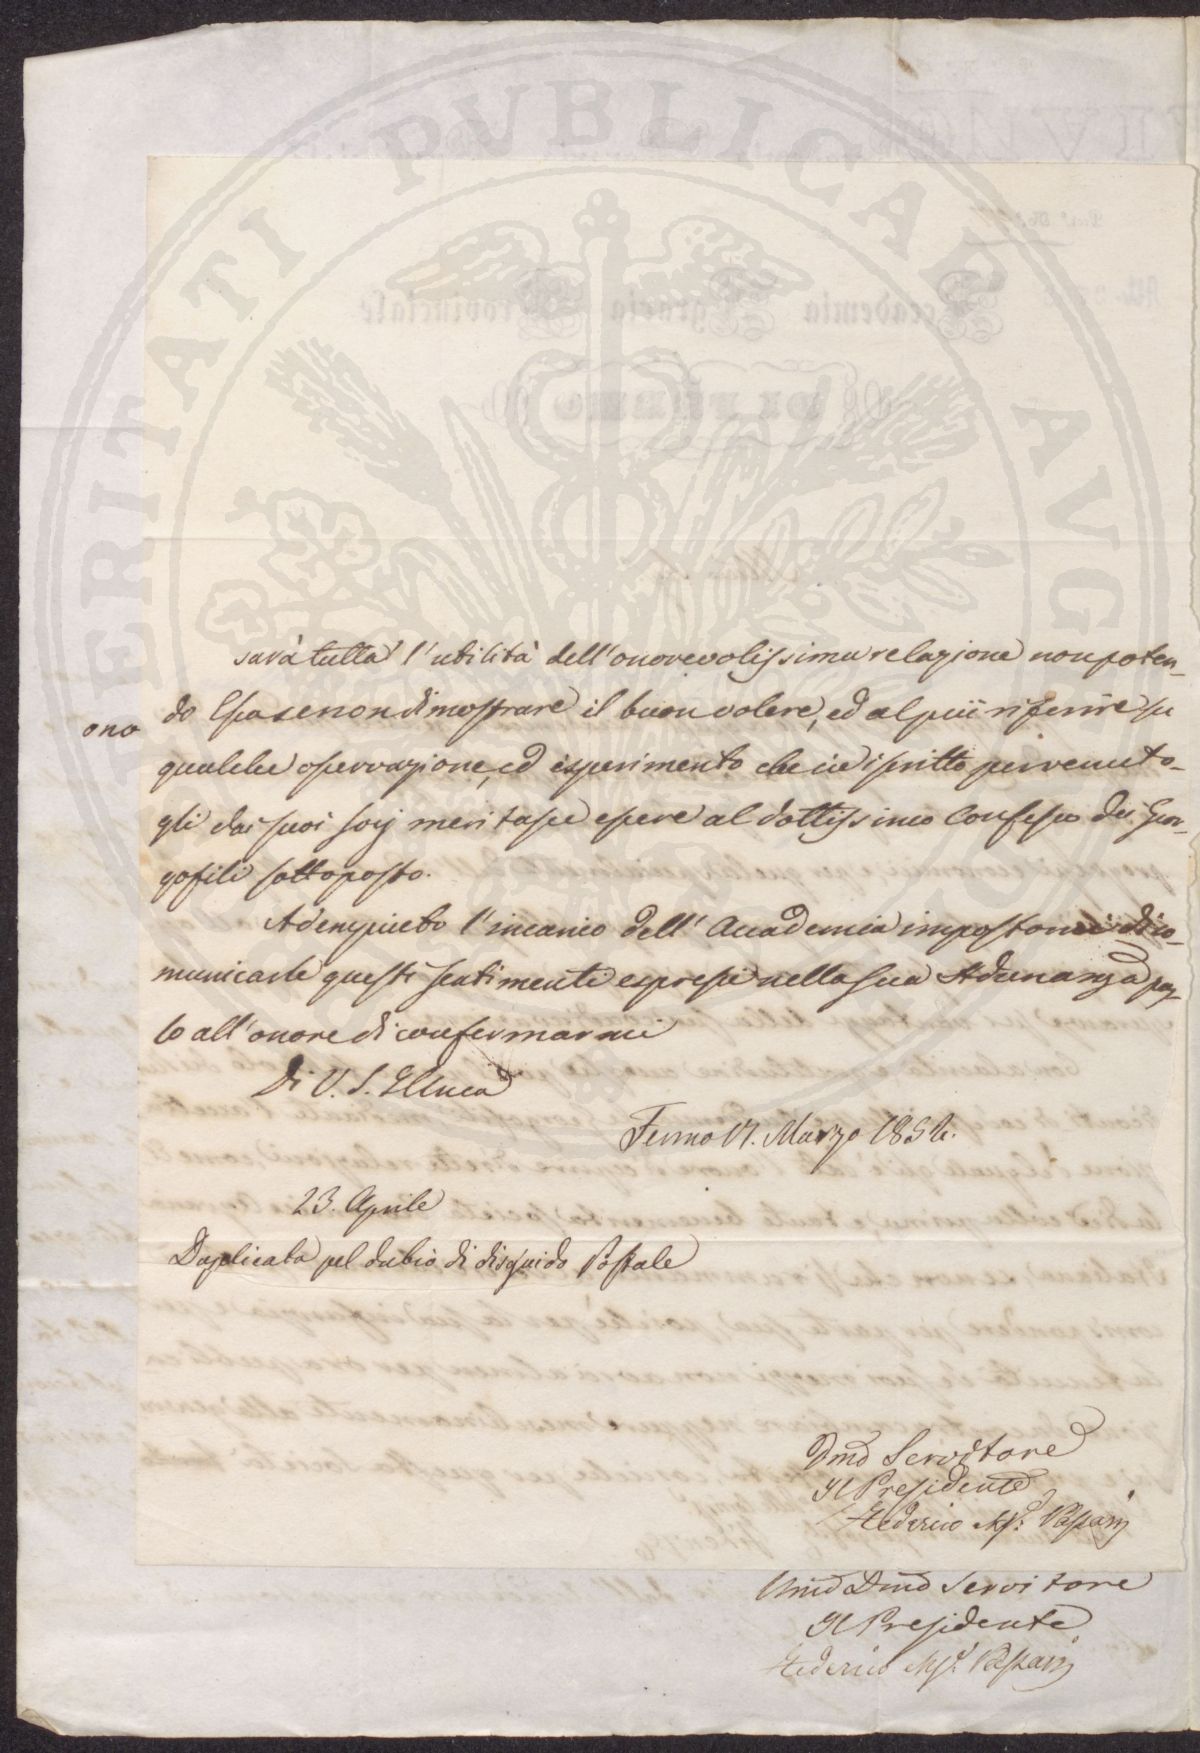 PROSPERITATI PVBLICAE AVGENDAE
sarà tutta l'utilità dell'onorevolissima relazione non poten-
do Essa se non dimostrare il buon volere, ed al più riferire su
ono
qualche osservazione, ed esperimento che in iscritto pervenuto-
gli dai suoi socj meritasse essere al dottissimo Consesso dei Geor-
gofili sottoposto.
Adempiuto l'incarico dell'Accademia impostomi di co-
municarle questi sentimenti espressi nella sua Adunanza pas-
so all'onore di confermarmi
Di V. S. Illma
Fermo 17. Marzo 1852.
23. Aprile
Duplicata pel dubio di disguido Postale
Dmo Servitore
Il Presidente
Federico Mse.
Umo Dmo Servitore
Il Presidente
Federico Mse.